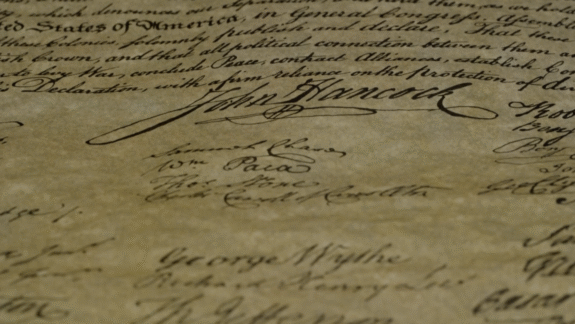 which denounces our Separation, and hold them, as we hold
ed States of America, in General Congress, Assembl
these Colonies, solemnly publish and declare, That these
ish Crown, and that all political connection between them an
to levy War, conclude Peace, contract Alliances, establish Com
Declaration, with a firm reliance on the protection of div
John Hancock
Samuel Chase
Wm Paca
Thos Stone
Charles Carroll of Carrollton
George Wythe
Richard Henry Lee
Th Jefferson